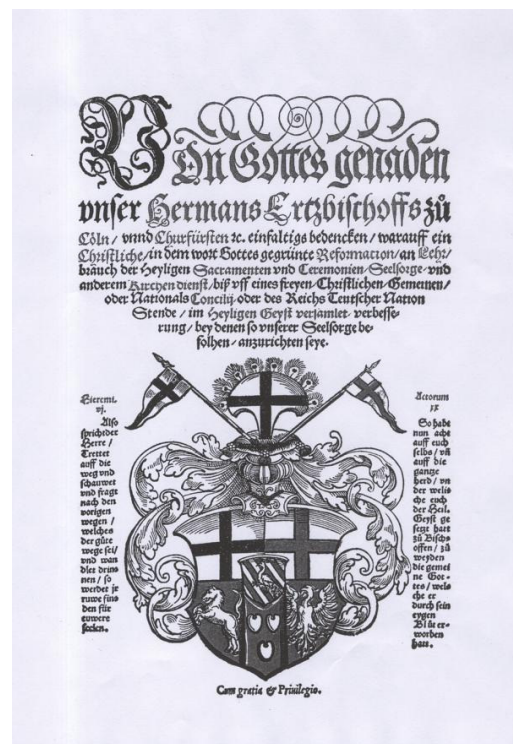 VOn Gottes genaden
vnser Hermans Ertzbischoffs zů
Cöln / vnnd Churfürsten ꝛc. einfaltigs bedencken / warauff ein
Christliche / in dem wort Gottes gegrünte Reformation / an Lehr /
brauch der Heyligen Sacramenten vnd Ceremonien / Seelsorge / vnd
anderem Kirchen dienst / biß vff eines freyen / Christlichen / Gemeinen /
oder Nationals Concilij / oder des Reichs Teutscher Nation
Stende / im Heyligen Geyst versamlet / verbesse-
rung / bey denen so vnserer Seelsorge be-
folhen / anzurichten seye.
Hieremi.
vj.
Also
sprichtder
Herre /
Trettet
auff die
weg vnd
schauwet
vnd fragt
nach den
vorigen
wegen /
welches
der güte
wege sei /
vnd wan
dlet drin-
nen / so
werdet jr
ruwe fin-
den für
euwere
seelen.
Actorum
xx
So habt
nun acht
auff euch
selbs / vñ
auff die
gantze
herd / vn
der wels
che euch
der Heil.
Geyst ge
setzt hatt
zů Bisch-
offen / zů
weyden
die gemei
ne Got-
tes / wel-
che er
durch sein
eygen
Blüt er-
worben
hatt.
Cum gratia & Priuilegio.